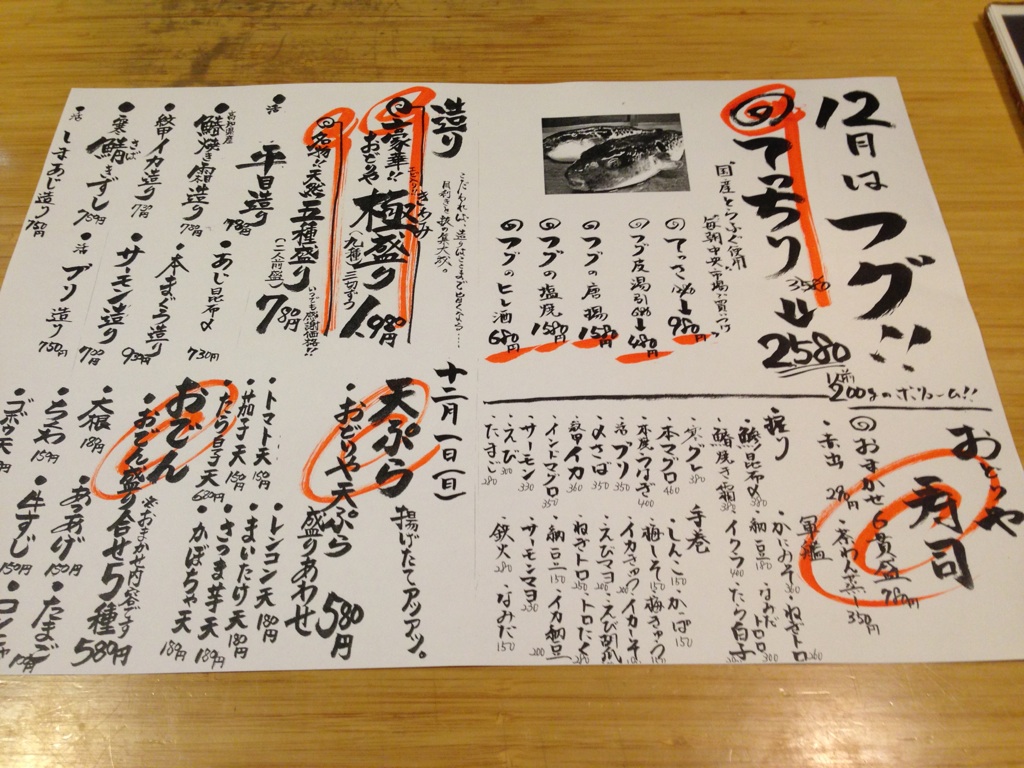 12月はフグ!!
てっちり
3580
2580
1人前
200gのボリューム!!
国産とらふぐ使用
毎朝中央市場で買いつけ
てっさ 980円
フグ皮湯引 480円
フグの唐揚 1580円
フグの塩焼 1580円
フグのヒレ酒 680円
おどりや
寿司
おまかせ6貫盛 780円
茶わん蒸し 350円
赤出 290円
軍艦
かにみそ
ねぎトロ 260
納豆 180
なみだトロロ 300
イクラ 400
たら白子
握り
鯵昆布〆 380
鰆焼き霜 380
寒グレ
本マグロ 460
本皮つぶぎ 400
活ブリ 350
〆さば 350
紋甲イカ 360
インドマグロ 350
サーモン 330
えび 300
たまご 280
手巻
しんこ 150
かっぱ 150
梅しそ 150
梅きゅう 150
イカきゅう
イカしそ
えびマヨ 200
ねぎトロ 250
トロたく
納豆 150
イカ納豆 200
サーモンマヨ 230
鉄火 280
なみだ 150
造り
こだわれば、造りはここまで旨くなる……
目利きと技の集大成。
豪華!!おどりや極盛り 1,980円
きわみ
(九種三切ずつ)
名物!!天然五種盛り 780円
(二人前盛)
いつでも感謝価格!!
活平目造り 780円
あじ昆布〆 730円
高知県産
鰆焼き霜造り 780円
本まぐろ造り 930円
紋甲イカ造り 780円
サーモン造り 700円
寒鯖ずし 750円
さば
活ブリ造り 750円
活しまあじ造り 750円
十二月一日(日)
天ぷら
揚げたてアツアツ。
おどりや天ぷら盛りあわせ 580円
トマト天 150円
レンコン天 180円
茄子天 150円
まいたけ天 180円
たら白子天 620円
さつま芋天 180円
かぼちゃ天 180円
おでん
おでん盛り合せ5種 580円
※おまかせ内容です
大根 180円
あつあげ 150円
たまご
ちくわ 150円
牛すじ 150円
ゴボウ天 150円